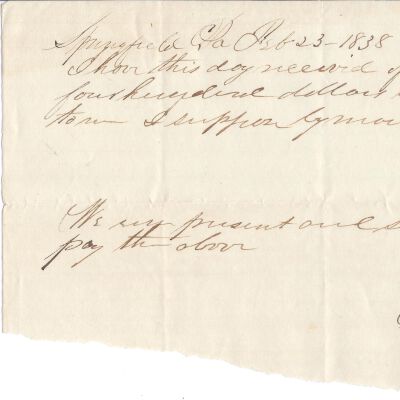 Springfield Pa Feb 23 - 1838
I have this day received of
four hundred dollars
term I suppose by mou
We were present and s
pay the above